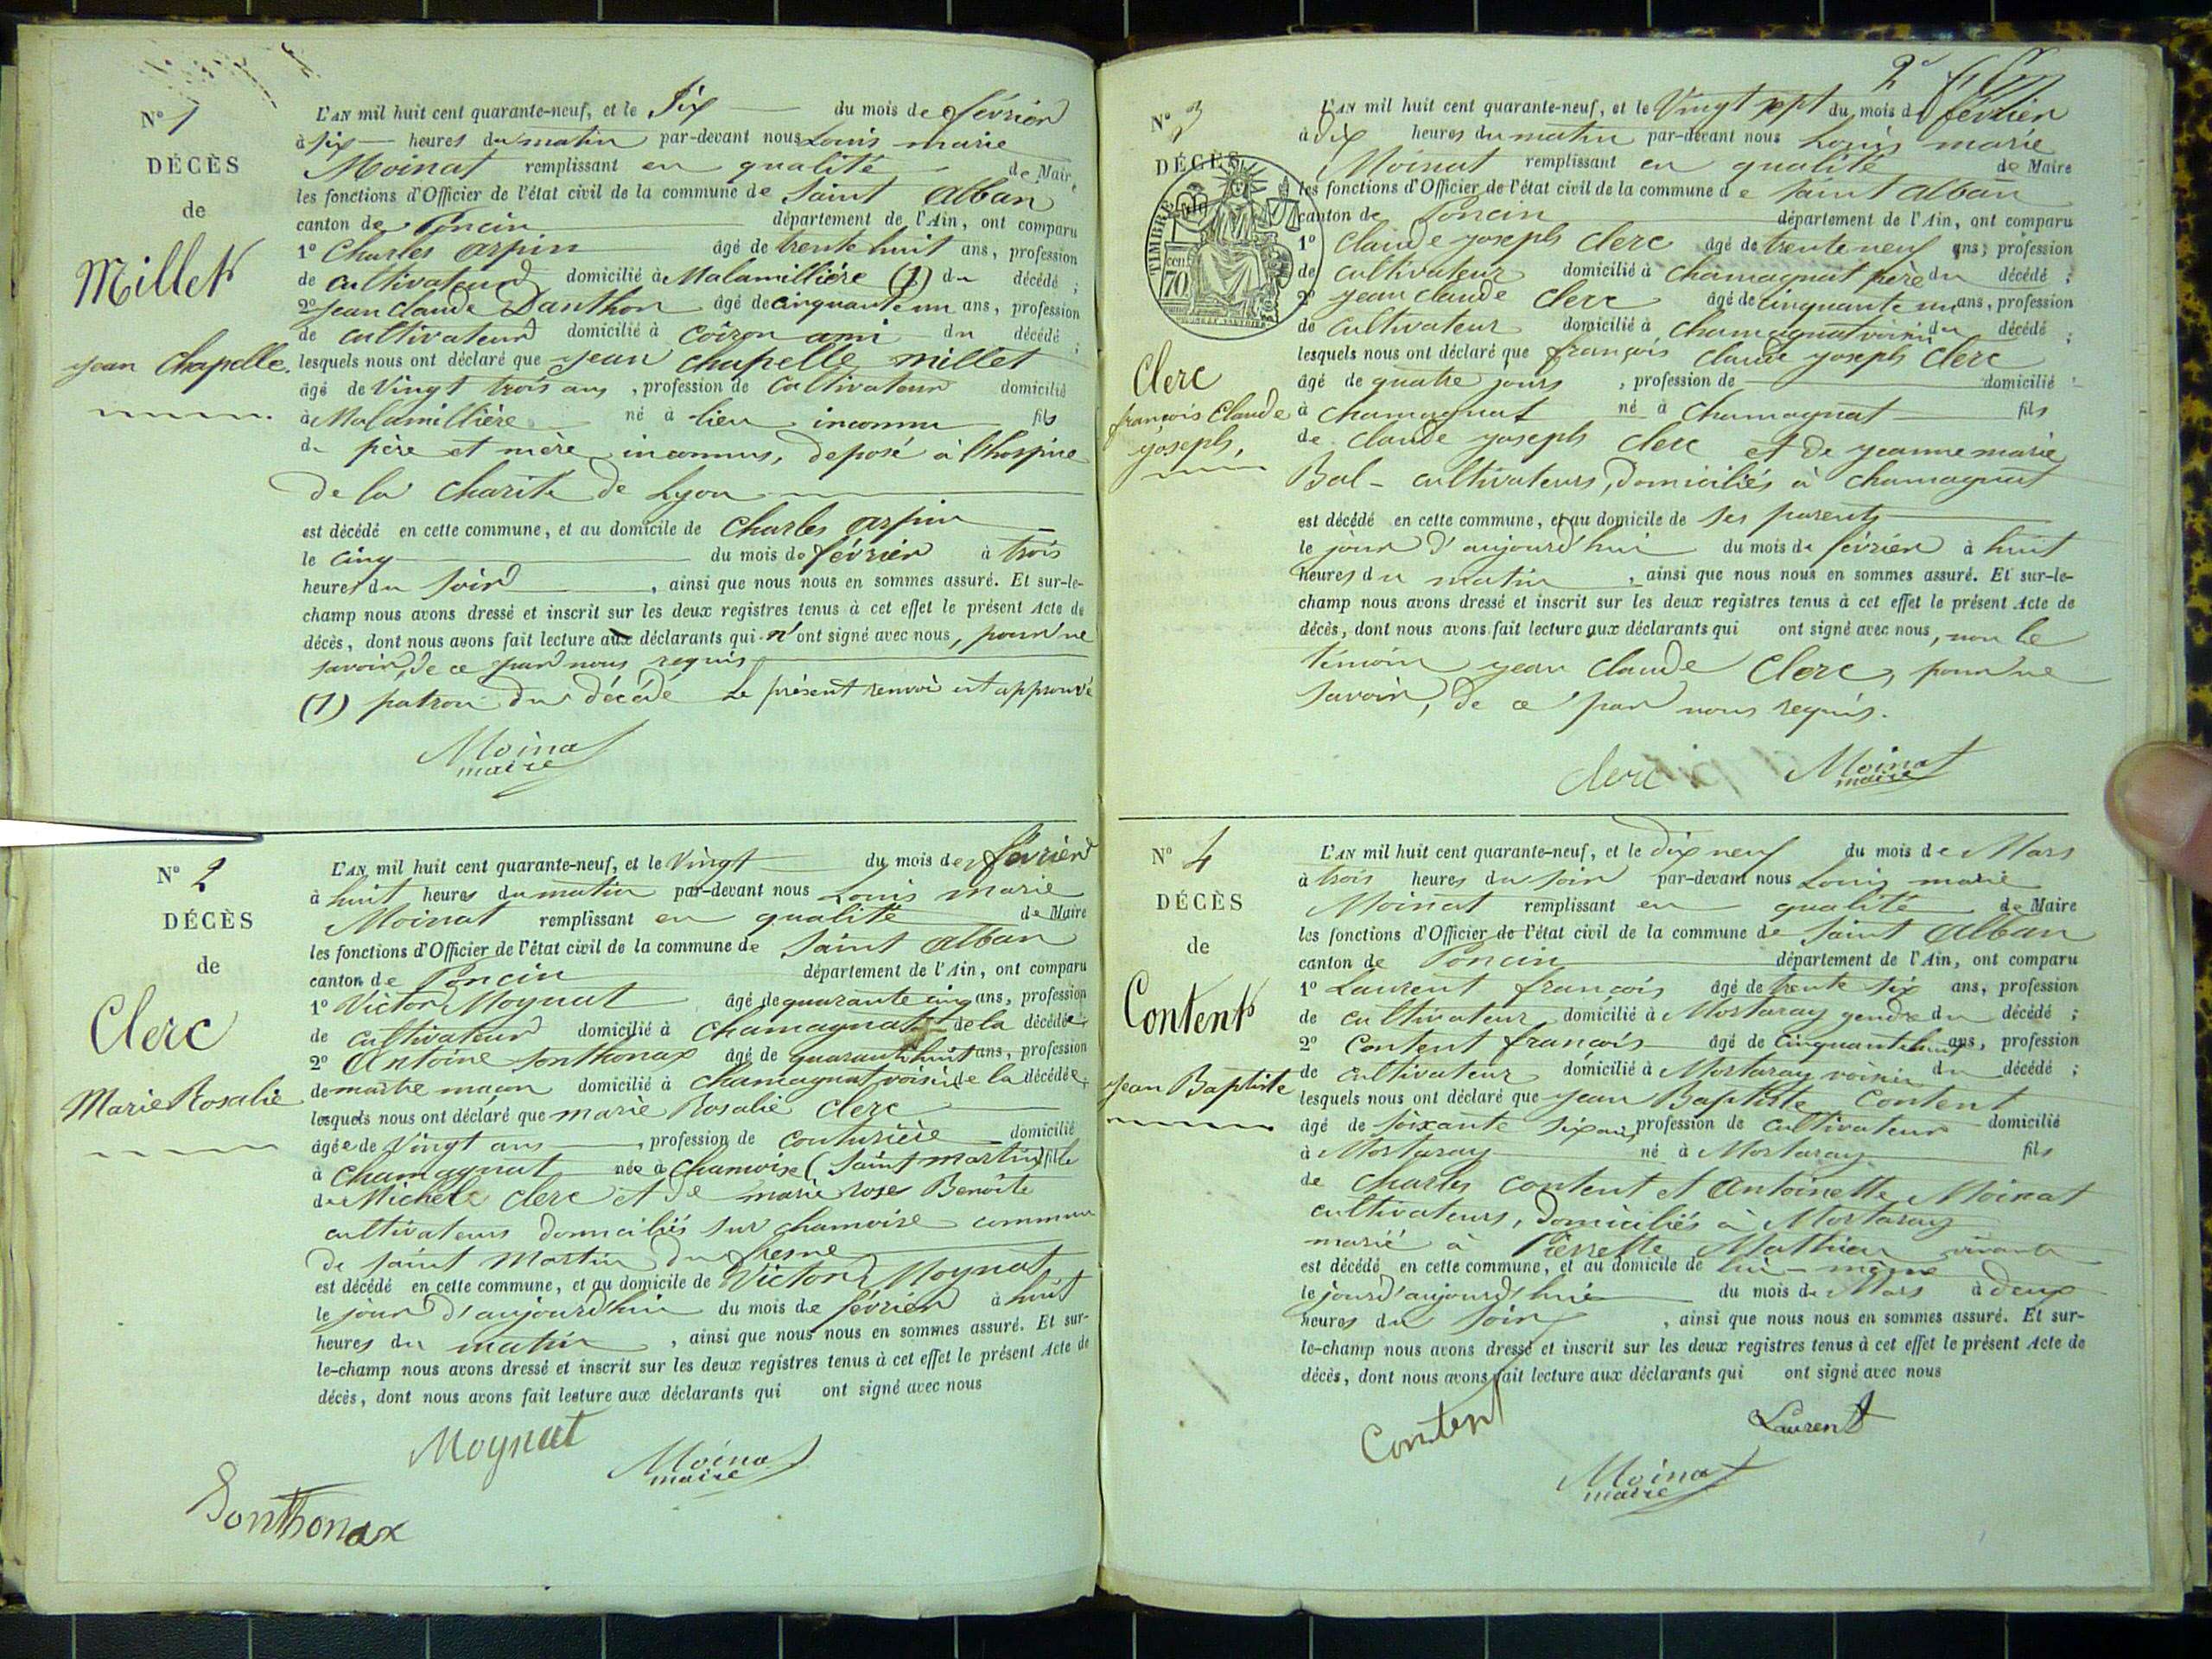 N° 1
DÉCÈS
de
Millet
Jean Chapelle.
L'AN mil huit cent quarante-neuf, et le Six du mois de février
à six heures du matin par-devant nous Louis marie
Moinat remplissant en qualité de Maire
les fonctions d'Officier de l'état civil de la commune de Saint Alban
canton de Poncin département de l'Ain, ont comparu
1° Charles Arpin âgé de trente huit ans, profession
de cultivateur domicilié à Malamillière (1) du décédé ;
2° Jean Claude Danthon âgé de cinquante un ans, profession
de cultivateur domicilié à Coiron ami du décédé ;
lesquels nous ont déclaré que Jean Chapelle Millet
âgé de Vingt trois ans, profession de Cultivateur domicilié
à Malamillière né à lieu inconnu fils
de père et mère inconnus, deposé à l'hospice
de la charité de Lyon
est décédé en cette commune, et au domicile de Charles Arpin
le cinq du mois de février à trois
heures du soir, ainsi que nous nous en sommes assuré. Et sur-le-
champ nous avons dressé et inscrit sur les deux registres tenus à cet effet le présent Acte de
décès, dont nous avons fait lecture aux déclarants qui n'ont signé avec nous, pour ne
savoir, de ce par nous requis
(1) patron du décédé Le présent renvoi est approuvé
Moinat
maire
N° 2
DÉCÈS
de
Clerc
Marie Rosalie
L'AN mil huit cent quarante-neuf, et le Vingt du mois de février
à huit heures du matin par-devant nous Louis marie
Moinat remplissant en qualité de Maire
les fonctions d'Officier de l'état civil de la commune de Saint Alban
canton de Poncin département de l'Ain, ont comparu
1° Victor Moynat âgé de quarante cinq ans, profession
de cultivateur domicilié à Chamagnat de la décédée ;
2° Antoine Sonthonax âgé de quarante huit ans, profession
de maître maçon domicilié à Chamagnat voisin de la décédée ;
lesquels nous ont déclaré que marie Rosalie Clerc
âgée de Vingt ans, profession de couturière domicilié
à Chamagnat née à Chamoise (Saint martin) fille
de Michel Clerc et de marie rose Benoîte
cultivateurs domiciliés sur chamoise commune
de Saint Martin du fresne
est décédé en cette commune, et au domicile de Victor Moynat
le jour d'aujourd'hui du mois de février à huit
heures du matin, ainsi que nous nous en sommes assuré. Et sur-
le-champ nous avons dressé et inscrit sur les deux registres tenus à cet effet le présent Acte de
décès, dont nous avons fait lecture aux déclarants qui ont signé avec nous
Moynat
Moinat
maire
Sonthonax
2e
N° 3
DÉCÈS
TIMBRE
70
Clerc
françois Claude
joseph,
L'AN mil huit cent quarante-neuf, et le Vingt sept du mois de février
à dix heures du matin par-devant nous Louis marie
Moinat remplissant en qualité de Maire
les fonctions d'Officier de l'état civil de la commune de Saint Alban
canton de Poncin département de l'Ain, ont comparu
1° Claude joseph Clerc âgé de trente neuf ans, profession
de cultivateur domicilié à Chamagnat père du décédé ;
2° Jean Claude Clerc âgé de cinquante un ans, profession
de Cultivateur domicilié à Chamagnat voisin du décédé ;
lesquels nous ont déclaré que françois Claude joseph Clerc
âgé de quatre jours, profession de domicilié
à Chamagnat né à Chamagnat fils
de Claude joseph Clerc et de jeanne marie
Bal - cultivateurs, domiciliés à Chamagnat
est décédé en cette commune, et au domicile de ses parents
le jour d'aujourd'hui du mois de février à huit
heures du matin, ainsi que nous nous en sommes assuré. Et sur-le-
champ nous avons dressé et inscrit sur les deux registres tenus à cet effet le présent Acte de
décès, dont nous avons fait lecture aux déclarants qui ont signé avec nous, non le
témoin jean Claude Clerc, pour ne
savoir, de ce par nous requis.
Clerc
Moinat
maire
N° 4
DÉCÈS
de
Content
Jean Baptiste
L'AN mil huit cent quarante-neuf, et le dix neuf du mois de Mars
à trois heures du soir par-devant nous Louis marie
Moinat remplissant en qualité de Maire
les fonctions d'Officier de l'état civil de la commune de Saint Alban
canton de Poncin département de l'Ain, ont comparu
1° Laurent françois âgé de trente six ans, profession
de cultivateur domicilié à Mortaray gendre du décédé ;
2° Content françois âgé de cinquante huit ans, profession
de cultivateur domicilié à Mortaray voisin du décédé ;
lesquels nous ont déclaré que Jean Baptiste Content
âgé de soixante six ans, profession de cultivateur domicilié
à Mortaray né à Mortaray fils
de Charles Content et Antoinette Moinat
cultivateurs, domiciliés à Mortaray
marié à Pierrette Mathieu vivante
est décédé en cette commune, et au domicile de lui-même
le jour d'aujourd'hui du mois de Mars à deux
heures du soir, ainsi que nous nous en sommes assuré. Et sur-
le-champ nous avons dressé et inscrit sur les deux registres tenus à cet effet le présent Acte de
décès, dont nous avons fait lecture aux déclarants qui ont signé avec nous
Content
Laurent
Moinat
maire